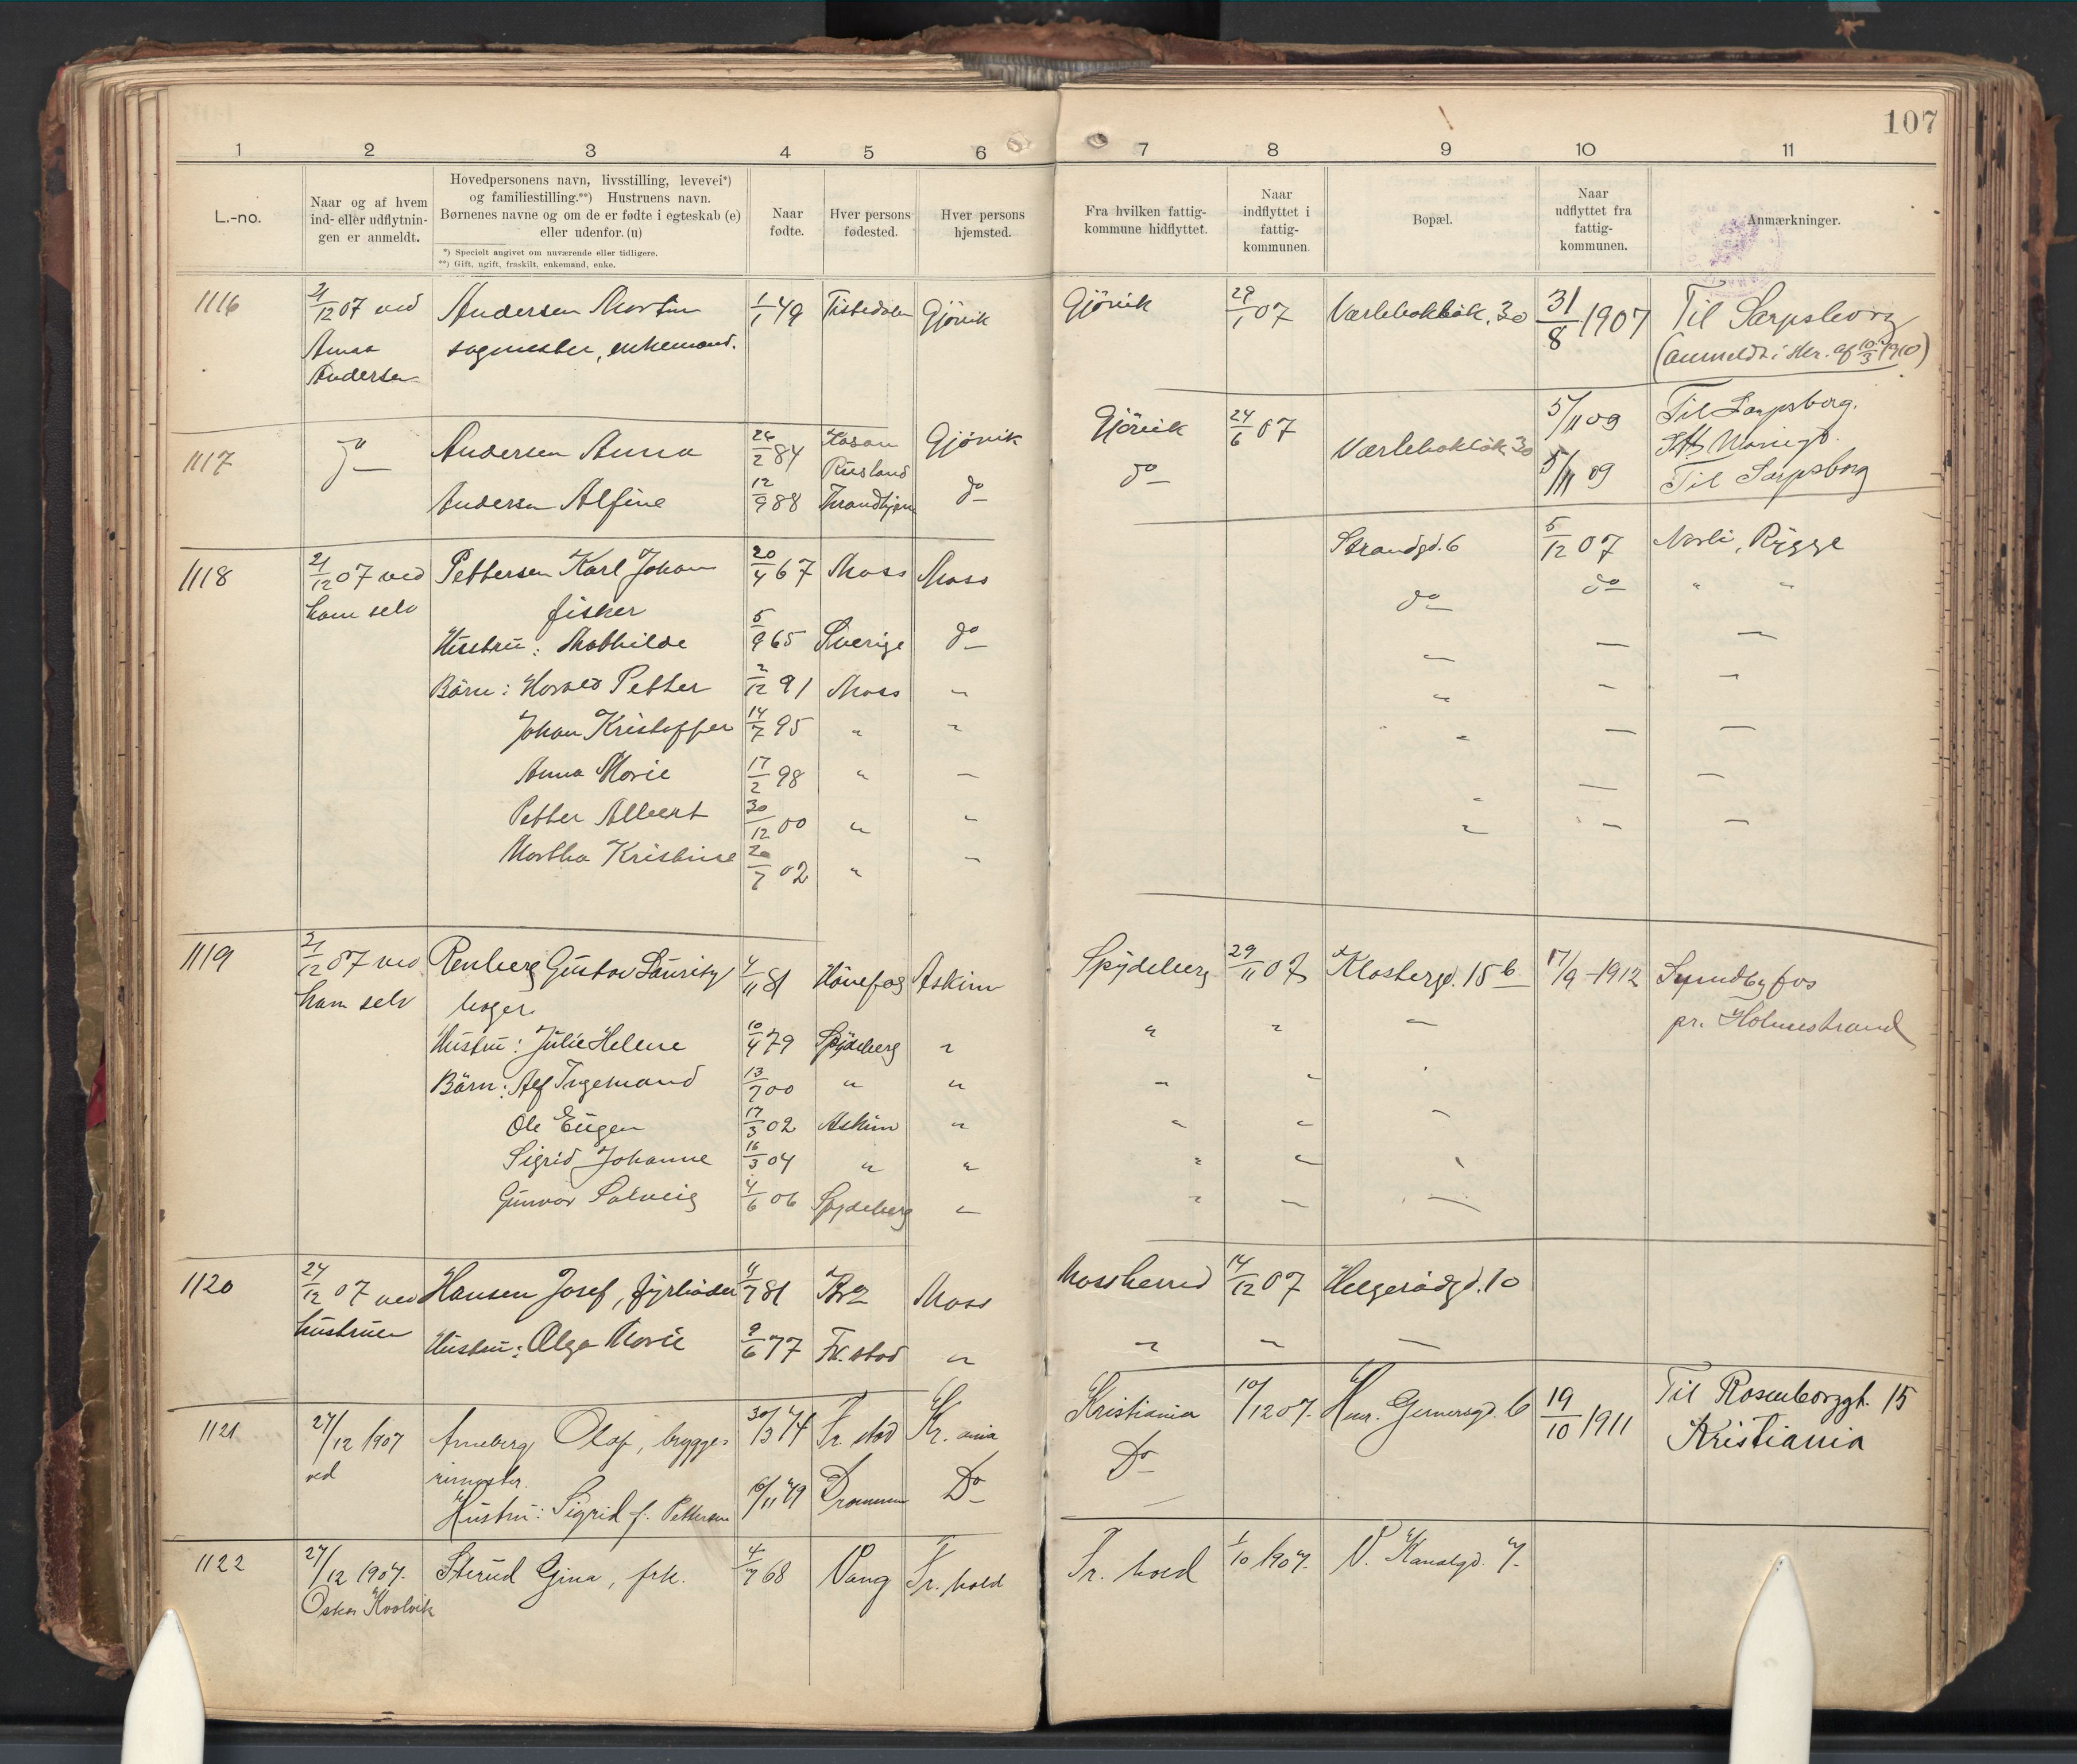 107
1 2 3 4 5 6 7 8 9 10 11
L.-no.
Naar og af hvem ind- eller udflytningen er anmeldt.
Hovedpersonens navn, livsstilling, levevei*) og familiestilling.**) Hustruens navn. Børnenes navne og om de er fødte i egteskab (e) eller udenfor. (u)
*) Specielt angivet om nuværende eller tidligere.
**) Gift, ugift, fraskilt, enkemand, enke.
Naar fødte.
Hver persons fødested.
Hver persons hjemsted.
Fra hvilken fattigkommune hidflyttet.
Naar indflyttet i fattigkommunen.
Bopæl.
Naar udflyttet fra fattigkommunen.
Anmærkninger.
1116 21/12 07 ved Andersen Martin 1/1 49 Tistedalen Gjövik Gjövik 29/1 07 Værlebakbak. 30 31/8 1907 Til Sarpsborg
Anna sagmester, enkemand. (anmeldt i skr. af 10/3 1910)
Andersen
1117 do Andersen Anna 26/2 84 Kasan Rusland Gjövik Gjövik 24/6 07 Værlebakbak 30 5/11 09 Til Sarpsborg.
Andersen Alfine 12/9 88 Trondhjem do do 5/11 09 Til Sarpsborg
1118 21/12 07 ved Pettersen Karl Johan 20/4 67 Moss Moss Strandgd. 6 5/12 07 Norli, Rygge
ham selv fisker do do " "
Hustru: Mathilde 5/9 65 Sverige do
Börn: Harald Petter 2/12 91 Moss "
Johan Kristoffer 14/7 95 " "
Anna Marie 17/2 98 " —
Petter Albert 30/12 00 " "
Martha Kristine 20/7 02 " —
1119 21/12 07 ved Renberg Gustav Lauritz 4/11 81 Hönefos Askim Spydeberg 29/11 07 Klostergd. 15 b 17/9 - 1912 Sundbyfos
ham selv bager pr. Holmestrand
Hustru: Julie Helene 10/4 79 Spydeberg " " " —
Börn: Alf Ingemand 13/7 00 " "
Ole Eugen 17/3 02 Askim "
Sigrid Johanne 16/3 04 " "
Gunvor Solveig 4/6 06 Spydeberg "
1120 24/12 07 ved Hansen Josef, fyrböder 4/7 81 Moss Mossherred 14/12 07 Helgerödgd. 10
hustruen Hustru: Olga Marie 9/6 77 Fr.stad " " — —
1121 27/12 1907 Arneberg Olaf, brygge- 30/3 74 Fr. stad Kr. ania Kristiania 10/12 07. Henr. Gernersgd. 6 19/10 1911 Til Rosenborggt. 15
ved rimester. Do Kristiania
Hustru: Sigrid f. Pettersen 6/11 79 Drammen Do
1122 27/12 1907. Sterud Gina, frk. 4/7 68 Vang Fr. hald Fr. hald 1/10 1907. V. Kanalgd. 7.
Oskar Kvalvik